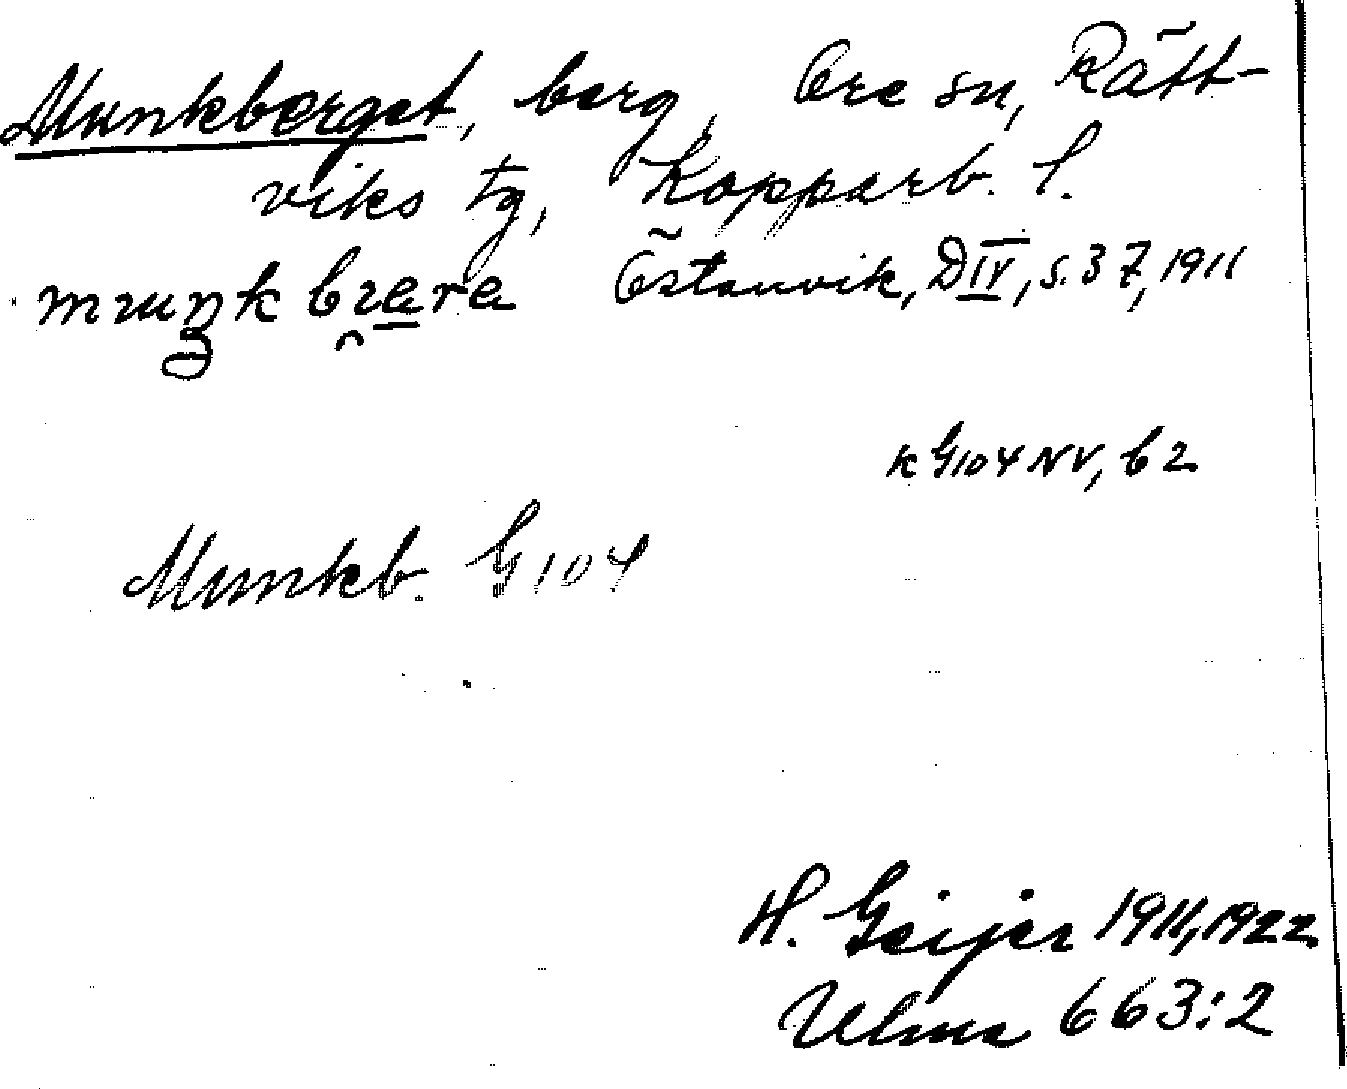 Munkberget, berg, Ore sn, Rätt-
viks tg, Kopparb. l.
Östanvik, DIV, s. 37, 1911
k G104 NV, b 2
Munkb. G104
H. Geijer 1911, 1922
Ulma 663:2